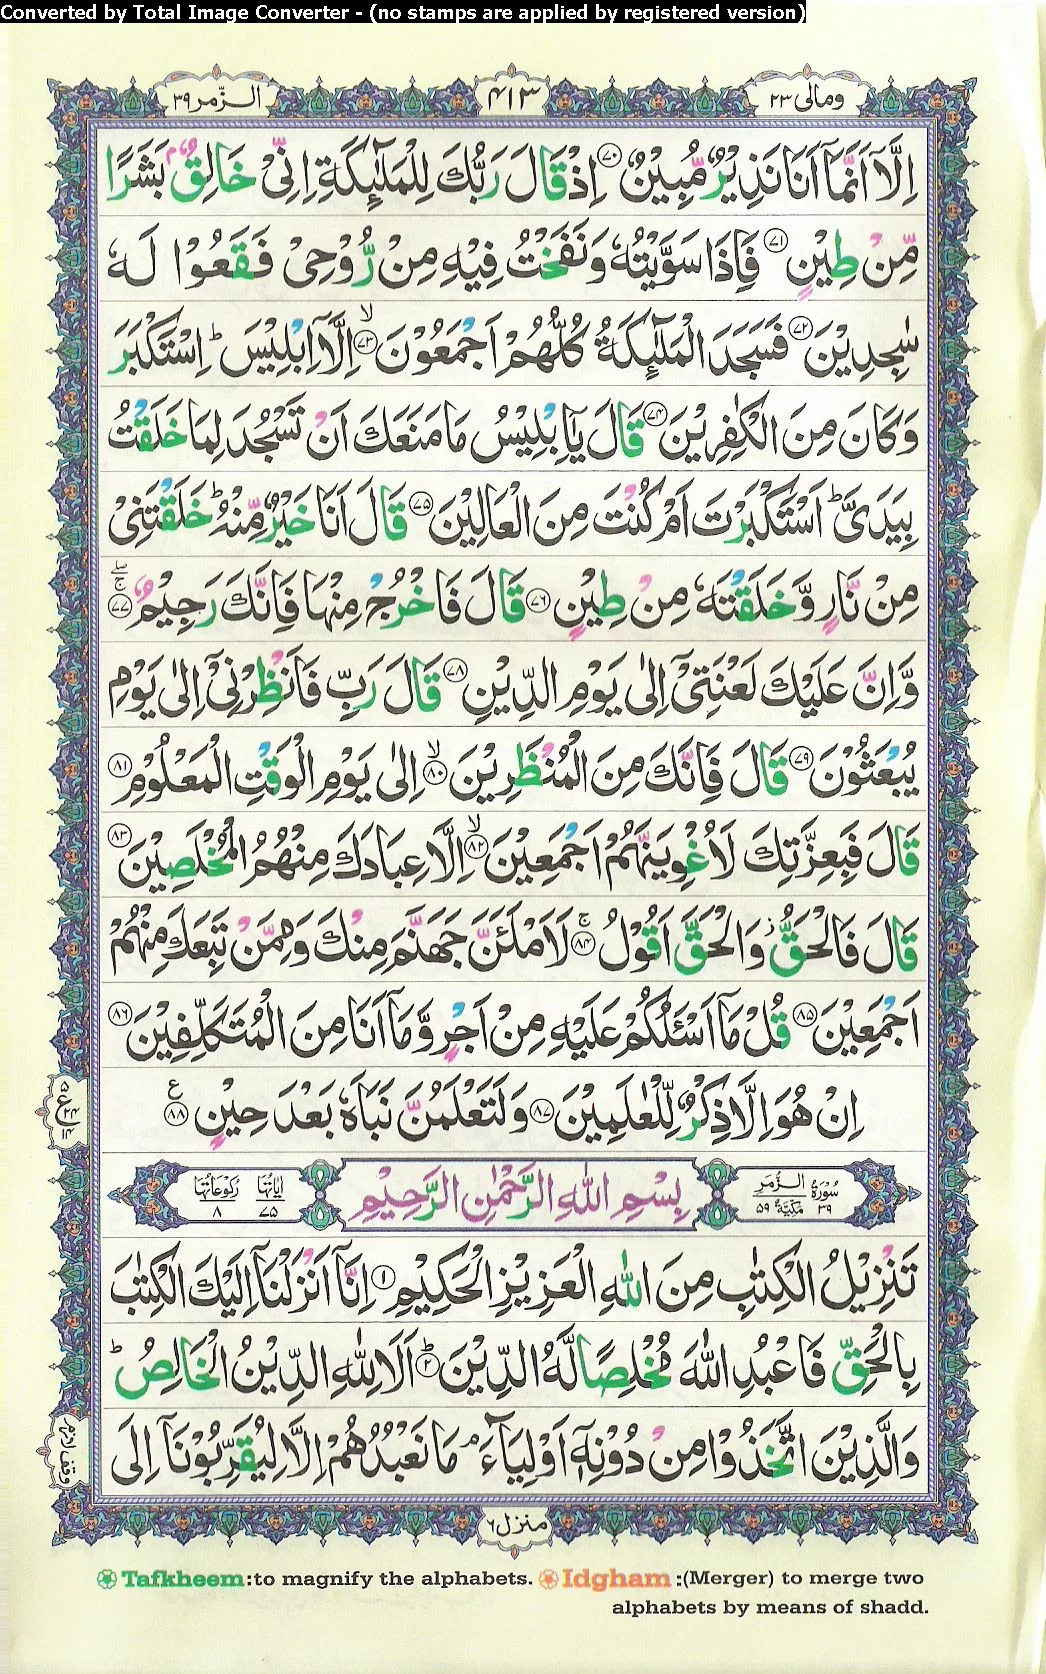 Converted by Total Image Converter - (no stamps are applied by registered version)
ومالی ۲۳
۴۱۳
الزّمر ۳۹
اِلَّاۤ اَنَّمَاۤ اَنَا نَذِیْرٌ مُّبِیْنٌ ۷۰ اِذْ قَالَ رَبُّكَ لِلْمَلٰٓىِٕكَةِ اِنِّیْ خَالِقٌۢ بَشَرًا
مِّنْ طِیْنٍ ۷۱ فَاِذَا سَوَّیْتُهٗ وَنَفَخْتُ فِیْهِ مِنْ رُّوْحِیْ فَقَعُوْا لَهٗ
سٰجِدِیْنَ ۷۲ فَسَجَدَ الْمَلٰٓىِٕكَةُ كُلُّهُمْ اَجْمَعُوْنَ ۙ۷۳ اِلَّاۤ اِبْلِیْسَ ؕ اِسْتَكْبَرَ
وَكَانَ مِنَ الْكٰفِرِیْنَ ۷۴ قَالَ یٰۤاِبْلِیْسُ مَا مَنَعَكَ اَنْ تَسْجُدَ لِمَا خَلَقْتُ
بِیَدَیَّ ؕ اَسْتَكْبَرْتَ اَمْ كُنْتَ مِنَ الْعَالِیْنَ ۷۵ قَالَ اَنَا خَیْرٌ مِّنْهُ ؕ خَلَقْتَنِیْ
مِنْ نَّارٍ وَّخَلَقْتَهٗ مِنْ طِیْنٍ ۷۶ قَالَ فَاخْرُجْ مِنْهَا فَاِنَّكَ رَجِیْمٌ ۷۷
وَّاِنَّ عَلَیْكَ لَعْنَتِیْۤ اِلٰی یَوْمِ الدِّیْنِ ۷۸ قَالَ رَبِّ فَاَنْظِرْنِیْۤ اِلٰی یَوْمِ
یُبْعَثُوْنَ ۷۹ قَالَ فَاِنَّكَ مِنَ الْمُنْظَرِیْنَ ۙ۸۰ اِلٰی یَوْمِ الْوَقْتِ الْمَعْلُوْمِ ۸۱
قَالَ فَبِعِزَّتِكَ لَاُغْوِیَنَّهُمْ اَجْمَعِیْنَ ۙ۸۲ اِلَّا عِبَادَكَ مِنْهُمُ الْمُخْلَصِیْنَ ۸۳
قَالَ فَالْحَقُّ ؗ وَالْحَقَّ اَقُوْلُ ۚ۸۴ لَاَمْلَـَٔنَّ جَهَنَّمَ مِنْكَ وَمِمَّنْ تَبِعَكَ مِنْهُمْ
اَجْمَعِیْنَ ۸۵ قُلْ مَاۤ اَسْـَٔلُكُمْ عَلَیْهِ مِنْ اَجْرٍ وَّمَاۤ اَنَا مِنَ الْمُتَكَلِّفِیْنَ ۸۶
اِنْ هُوَ اِلَّا ذِكْرٌ لِّلْعٰلَمِیْنَ ۸۷ وَلَتَعْلَمُنَّ نَبَاَهٗ بَعْدَ حِیْنٍ ۸۸ ع
۵
ع ۲۴
۱۴
سُوْرَةُ الزُّمَرِ ۳۹ مَكِّیَّةٌ ۵۹
بِسْمِ اللّٰهِ الرَّحْمٰنِ الرَّحِیْمِ
اٰیَاتُهَا ۷۵ رُكُوْعَاتُهَا ۸
تَنْزِیْلُ الْكِتٰبِ مِنَ اللّٰهِ الْعَزِیْزِ الْحَكِیْمِ ۱ اِنَّاۤ اَنْزَلْنَاۤ اِلَیْكَ الْكِتٰبَ
بِالْحَقِّ فَاعْبُدِ اللّٰهَ مُخْلِصًا لَّهُ الدِّیْنَ ؕ۲ اَلَا لِلّٰهِ الدِّیْنُ الْخَالِصُ ؕ
وَالَّذِیْنَ اتَّخَذُوْا مِنْ دُوْنِهٖۤ اَوْلِیَآءَ ۘ مَا نَعْبُدُهُمْ اِلَّا لِیُقَرِّبُوْنَاۤ اِلَی
وقف لازم
منزل ۶
Tafkheem :to magnify the alphabets. Idgham :(Merger) to merge two
alphabets by means of shadd.